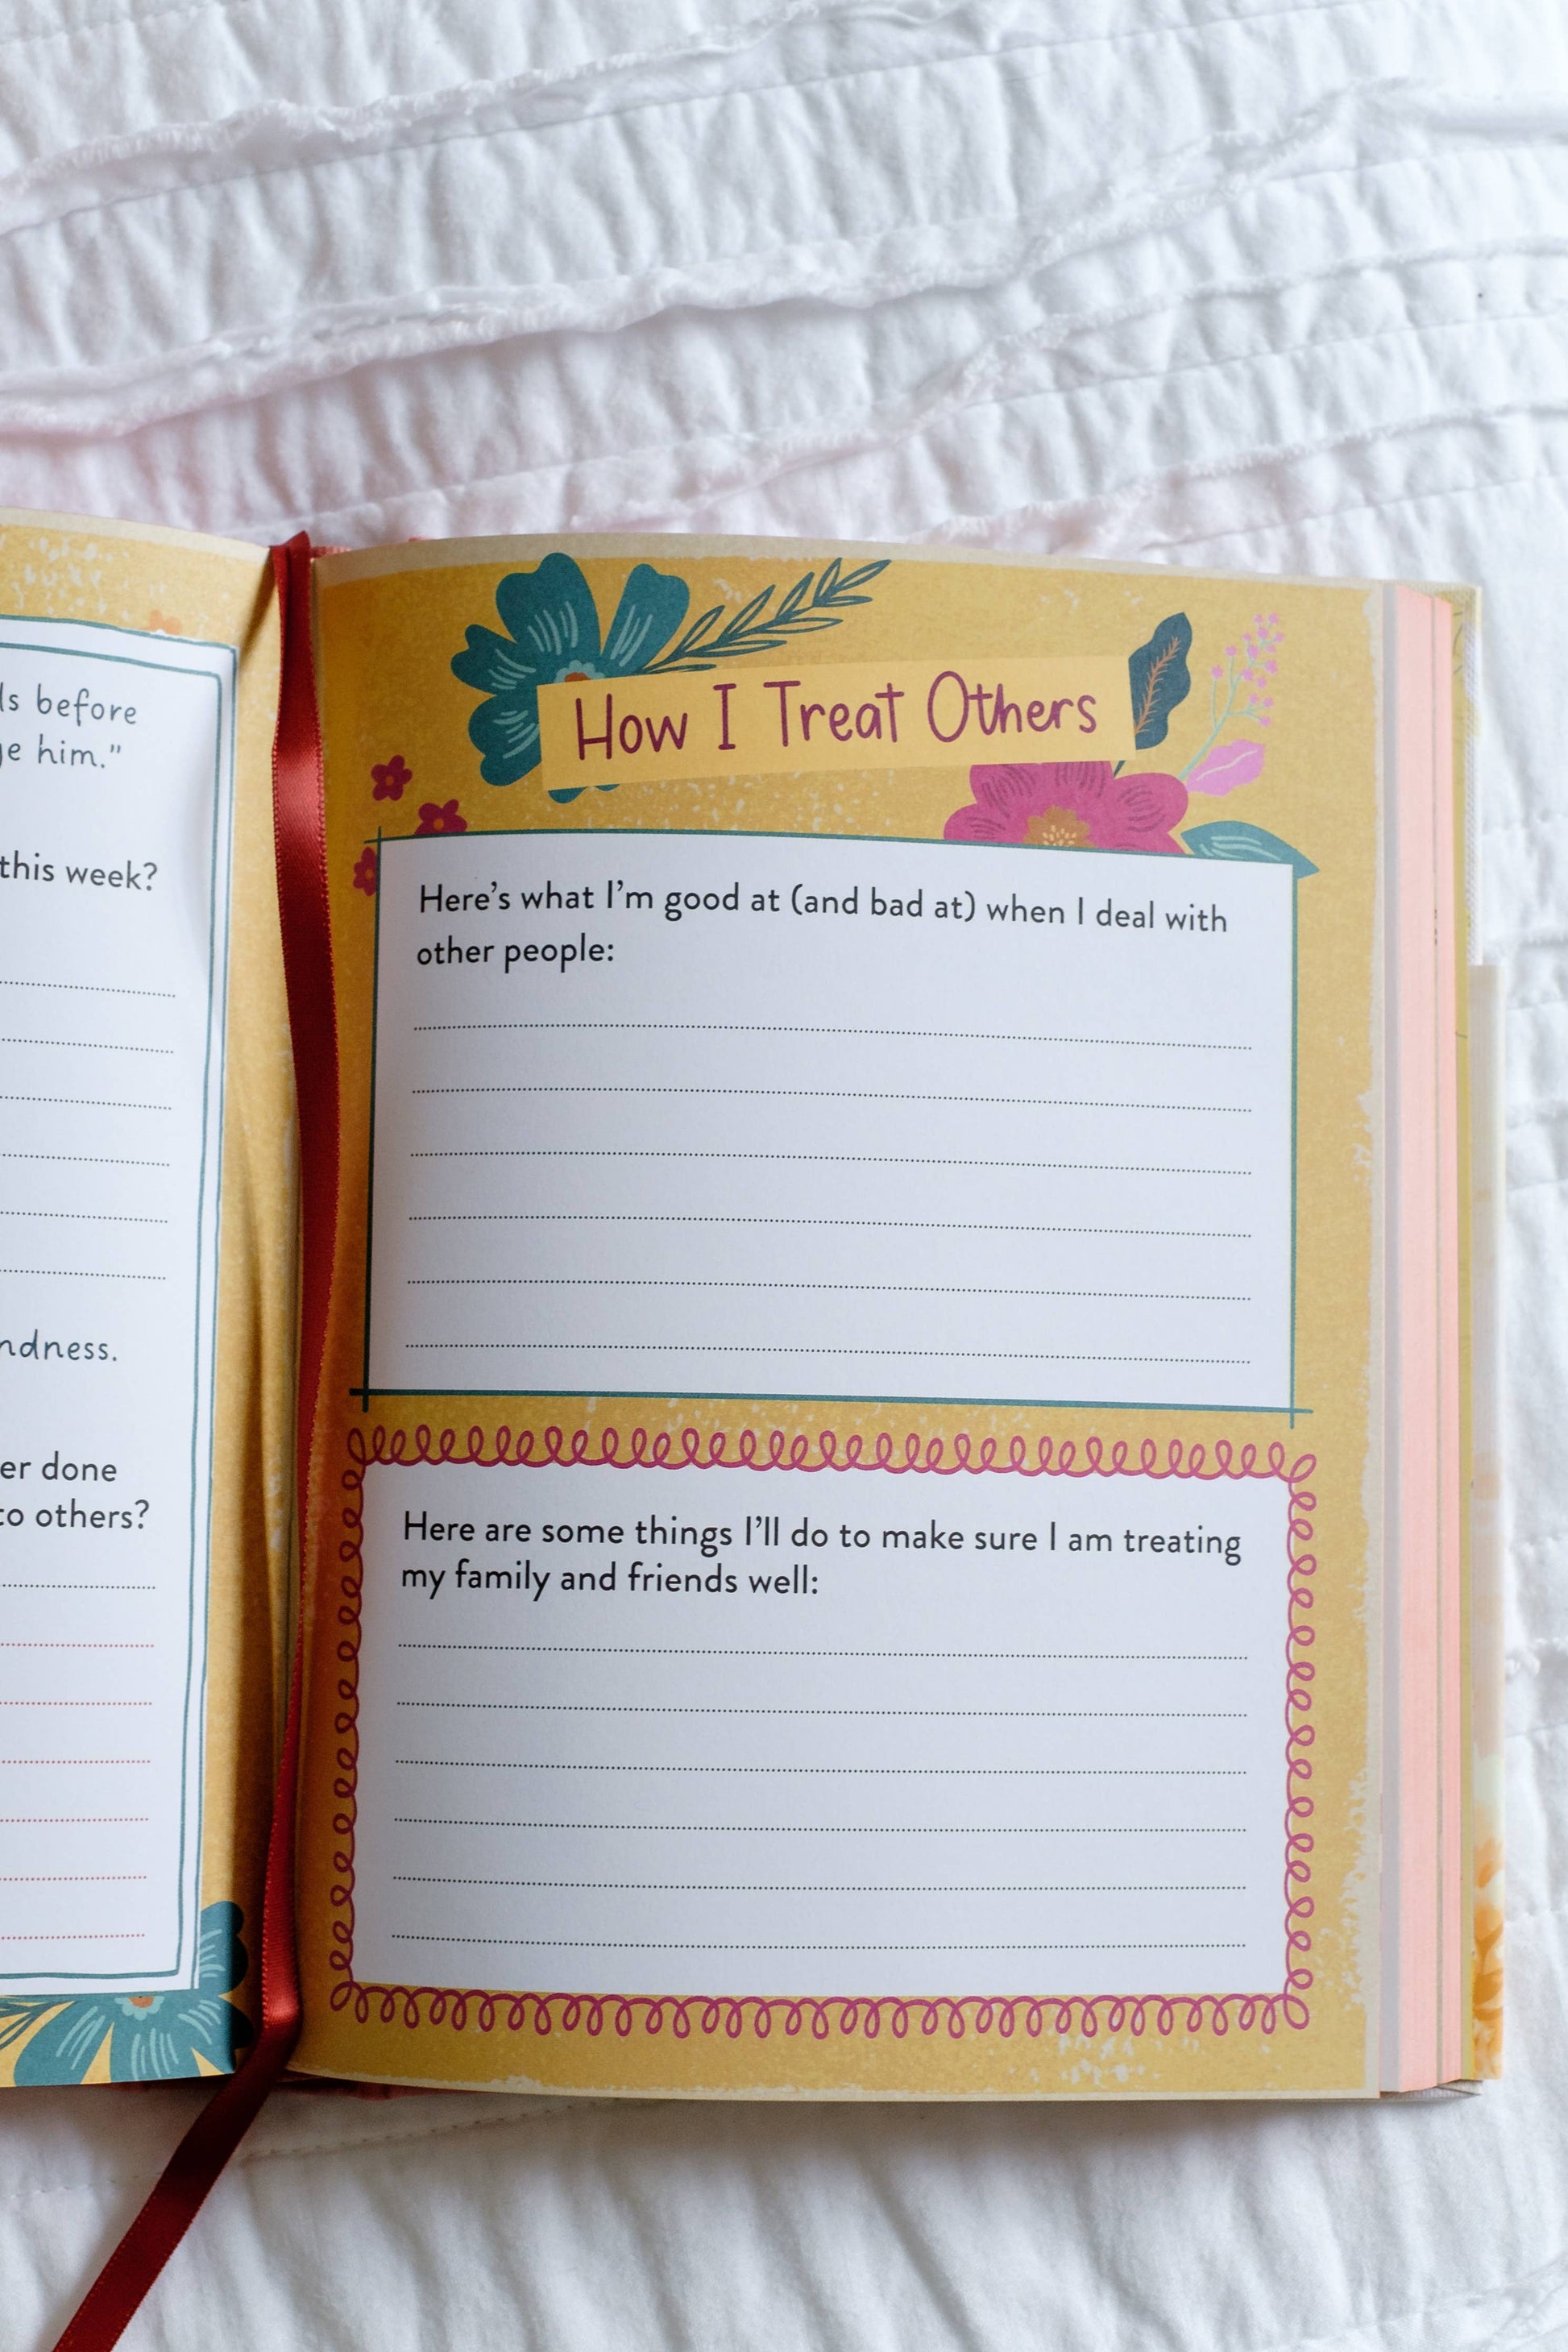 before
him."
this week?
done
to others?
How I Treat Others
Here's what I'm good at (and bad at) when I deal with
other people:
Here are some things I'll do to make sure I am treating
my family and friends well: